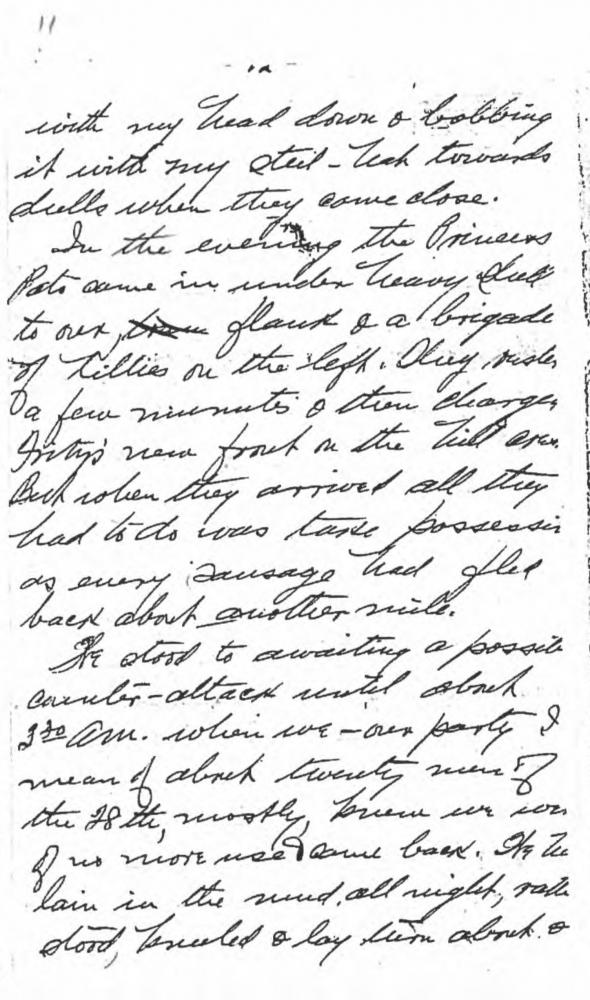 11
with my head down & bobbing
it with my steel-hat towards
shells when they came close.
In the evening the Princess
Pats came in under heavy shell
to our flank & a brigade
of Killies on the left. They reste
a few minutes & then charge
Fritzy's new front on the hill
But when they arrived all they
had to do was take possessi
as every sausage had fled
back about another mile.
We stood to awaiting a possib
counter-attack until about
3.30 Am. when we - our party I
mean of about twenty men of
the 28th, mostly, knew we wer
of no more use & came back. We
lain in the mud all night, rath
stood, kneeled & lay turn about &